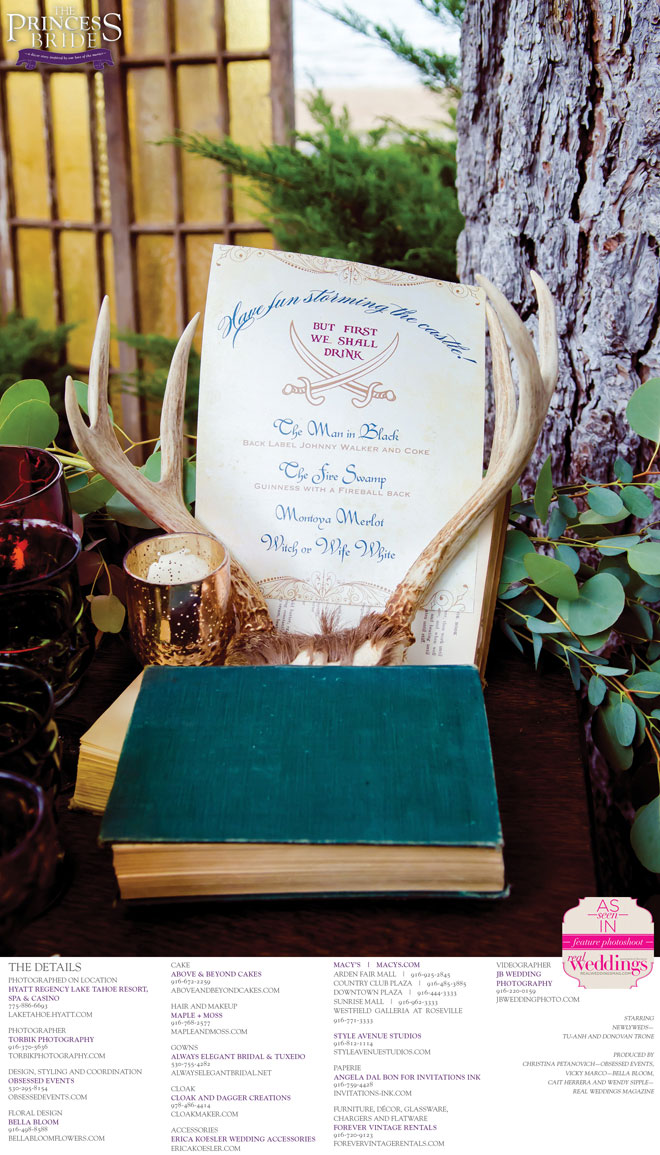 THE
PRINCESS
BRIDE
Have fun storming the castle!
BUT FIRST
WE SHALL
DRINK
The Man in Black
BACK LABEL JOHNNY WALKER AND COKE
The Fire Swamp
GUINNESS WITH A FIREBALL BACK
Montoya Merlot
Witch or Wife White
AS
seen
IN
feature photoshoot
real
weddings
THE DETAILS
PHOTOGRAPHED ON LOCATION
HYATT REGENCY LAKE TAHOE RESORT,
SPA & CASINO
775-886-6693
LAKETAHOE.HYATT.COM
PHOTOGRAPHER
TORBIK PHOTOGRAPHY
916-370-5636
TORBIKPHOTOGRAPHY.COM
DESIGN, STYLING AND COORDINATION
OBSESSED EVENTS
530-295-8154
OBSESSEDEVENTS.COM
FLORAL DESIGN
BELLA BLOOM
916-498-8588
BELLABLOOMFLOWERS.COM
CAKE
ABOVE & BEYOND CAKES
916-672-2259
ABOVEANDBEYONDCAKES.COM
HAIR AND MAKEUP
MAPLE + MOSS
916-768-2577
MAPLEANDMOSS.COM
GOWNS
ALWAYS ELEGANT BRIDAL & TUXEDO
530-755-4282
ALWAYSELEGANTBRIDAL.NET
CLOAK
CLOAK AND DAGGER CREATIONS
978-486-4414
CLOAKMAKER.COM
ACCESSORIES
ERICA KOESLER WEDDING ACCESSORIES
ERICAKOESLER.COM
MACY'S | MACYS.COM
ARDEN FAIR MALL | 916-925-2845
COUNTRY CLUB PLAZA | 916-485-3885
DOWNTOWN PLAZA | 916-444-3333
SUNRISE MALL | 916-962-3333
WESTFIELD GALLERIA AT ROSEVILLE
916-771-3333
STYLE AVENUE STUDIOS
916-812-1114
STYLEAVENUESTUDIOS.COM
PAPERIE
ANGELA DAL BON FOR INVITATIONS INK
916-759-4428
INVITATIONS-INK.COM
FURNITURE, DÉCOR, GLASSWARE,
CHARGERS AND FLATWARE
FOREVER VINTAGE RENTALS
916-720-9123
FOREVERVINTAGERENTALS.COM
VIDEOGRAPHER
JB WEDDING
PHOTOGRAPHY
916-220-0159
JBWEDDINGPHOTO.COM
STARRING
NEWLYWEDS—
TU-ANH AND DONOVAN TRONE
PRODUCED BY
CHRISTINA PETANOVICH—OBSESSED EVENTS,
VICKY MARCO—BELLA BLOOM,
CAIT HERRERA AND WENDY SIPPLE—
REAL WEDDINGS MAGAZINE